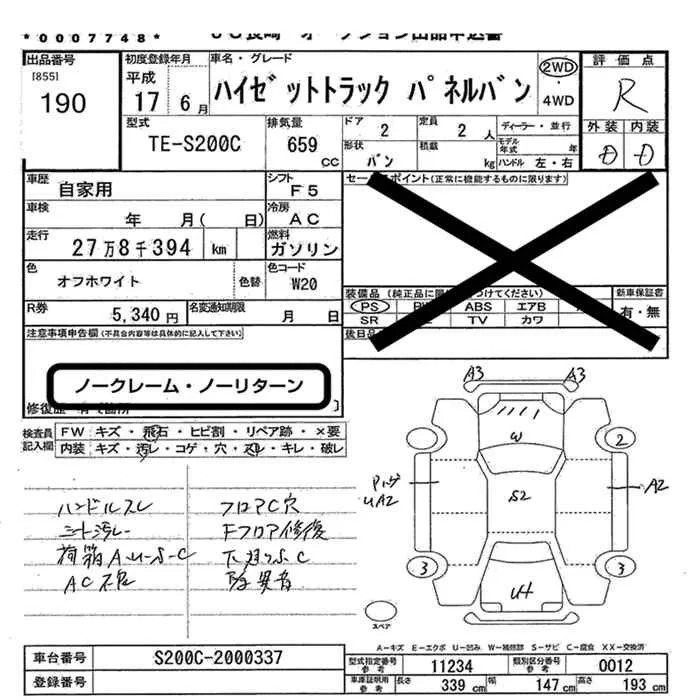 *0007748*
出品番号
[855]
190
初度登録年月
平成
17 6月
車名・グレード
ハイゼットトラック パネルバン
2WD
・
4WD
評価点
R
外装 内装
D D
型式
TE-S200C
排気量
659
CC
ドア 2
定員 2人
ディーラー・並行
形状
バン
積載 kg
モデル年式 年
ハンドル 左・右
車歴
自家用
シフト
F5
車検
年 月( 日)
冷房
AC
走行
27万8千394 km
燃料
ガソリン
色
オフホワイト
色替
色コード
W20
R券
5,340円
名変通知期限
月 日
(正常に機能するものに限ります)
装備品
PS
ABS エアB
SR TV カワ
新車保証書
有・無
注意事項申告欄(不具合内容等は具体的に記入して下さい)
ノークレーム・ノーリターン
検査員
記入欄
FW キズ・飛石・ヒビ割・リペア跡・×要
内装 キズ・汚レ・コゲ・穴・スレ・キレ・破レ
ハンドルスレ
シート汚レ
荷箱AUSC
AC不良
フロアC穴
Fフロア修復
A3 A3
W
2
UA2
S2
A2
3 3
U4
スペア
A-キズ E-エクボ U-凹み W-補修跡 S-サビ C-腐食 XX-交換済
車台番号
S200C-2000337
登録番号
型式指定番号
参考
11234
類別区分番号
参考
0012
車庫証明用
参考
長さ
339 cm
幅
147 cm
高さ
193 cm